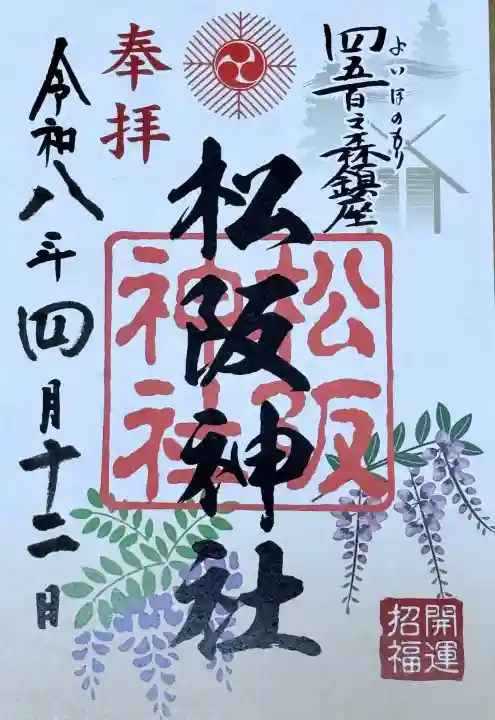 四五百々森鎮座
よいほのもり
奉拝
松阪神社
松阪
神社
令和八年四月十二日
開運
招福